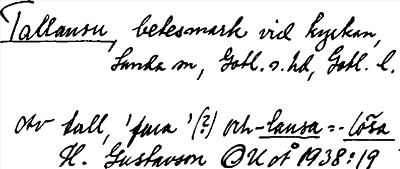 Tallausu, betesmark vid kyrkan,
Sanda sn, Gotl. s. hd, Gotl. l.
Av tall, 'fura' (?) och -lausa = -lösa
H. Gustavson OUÅ 1938:19